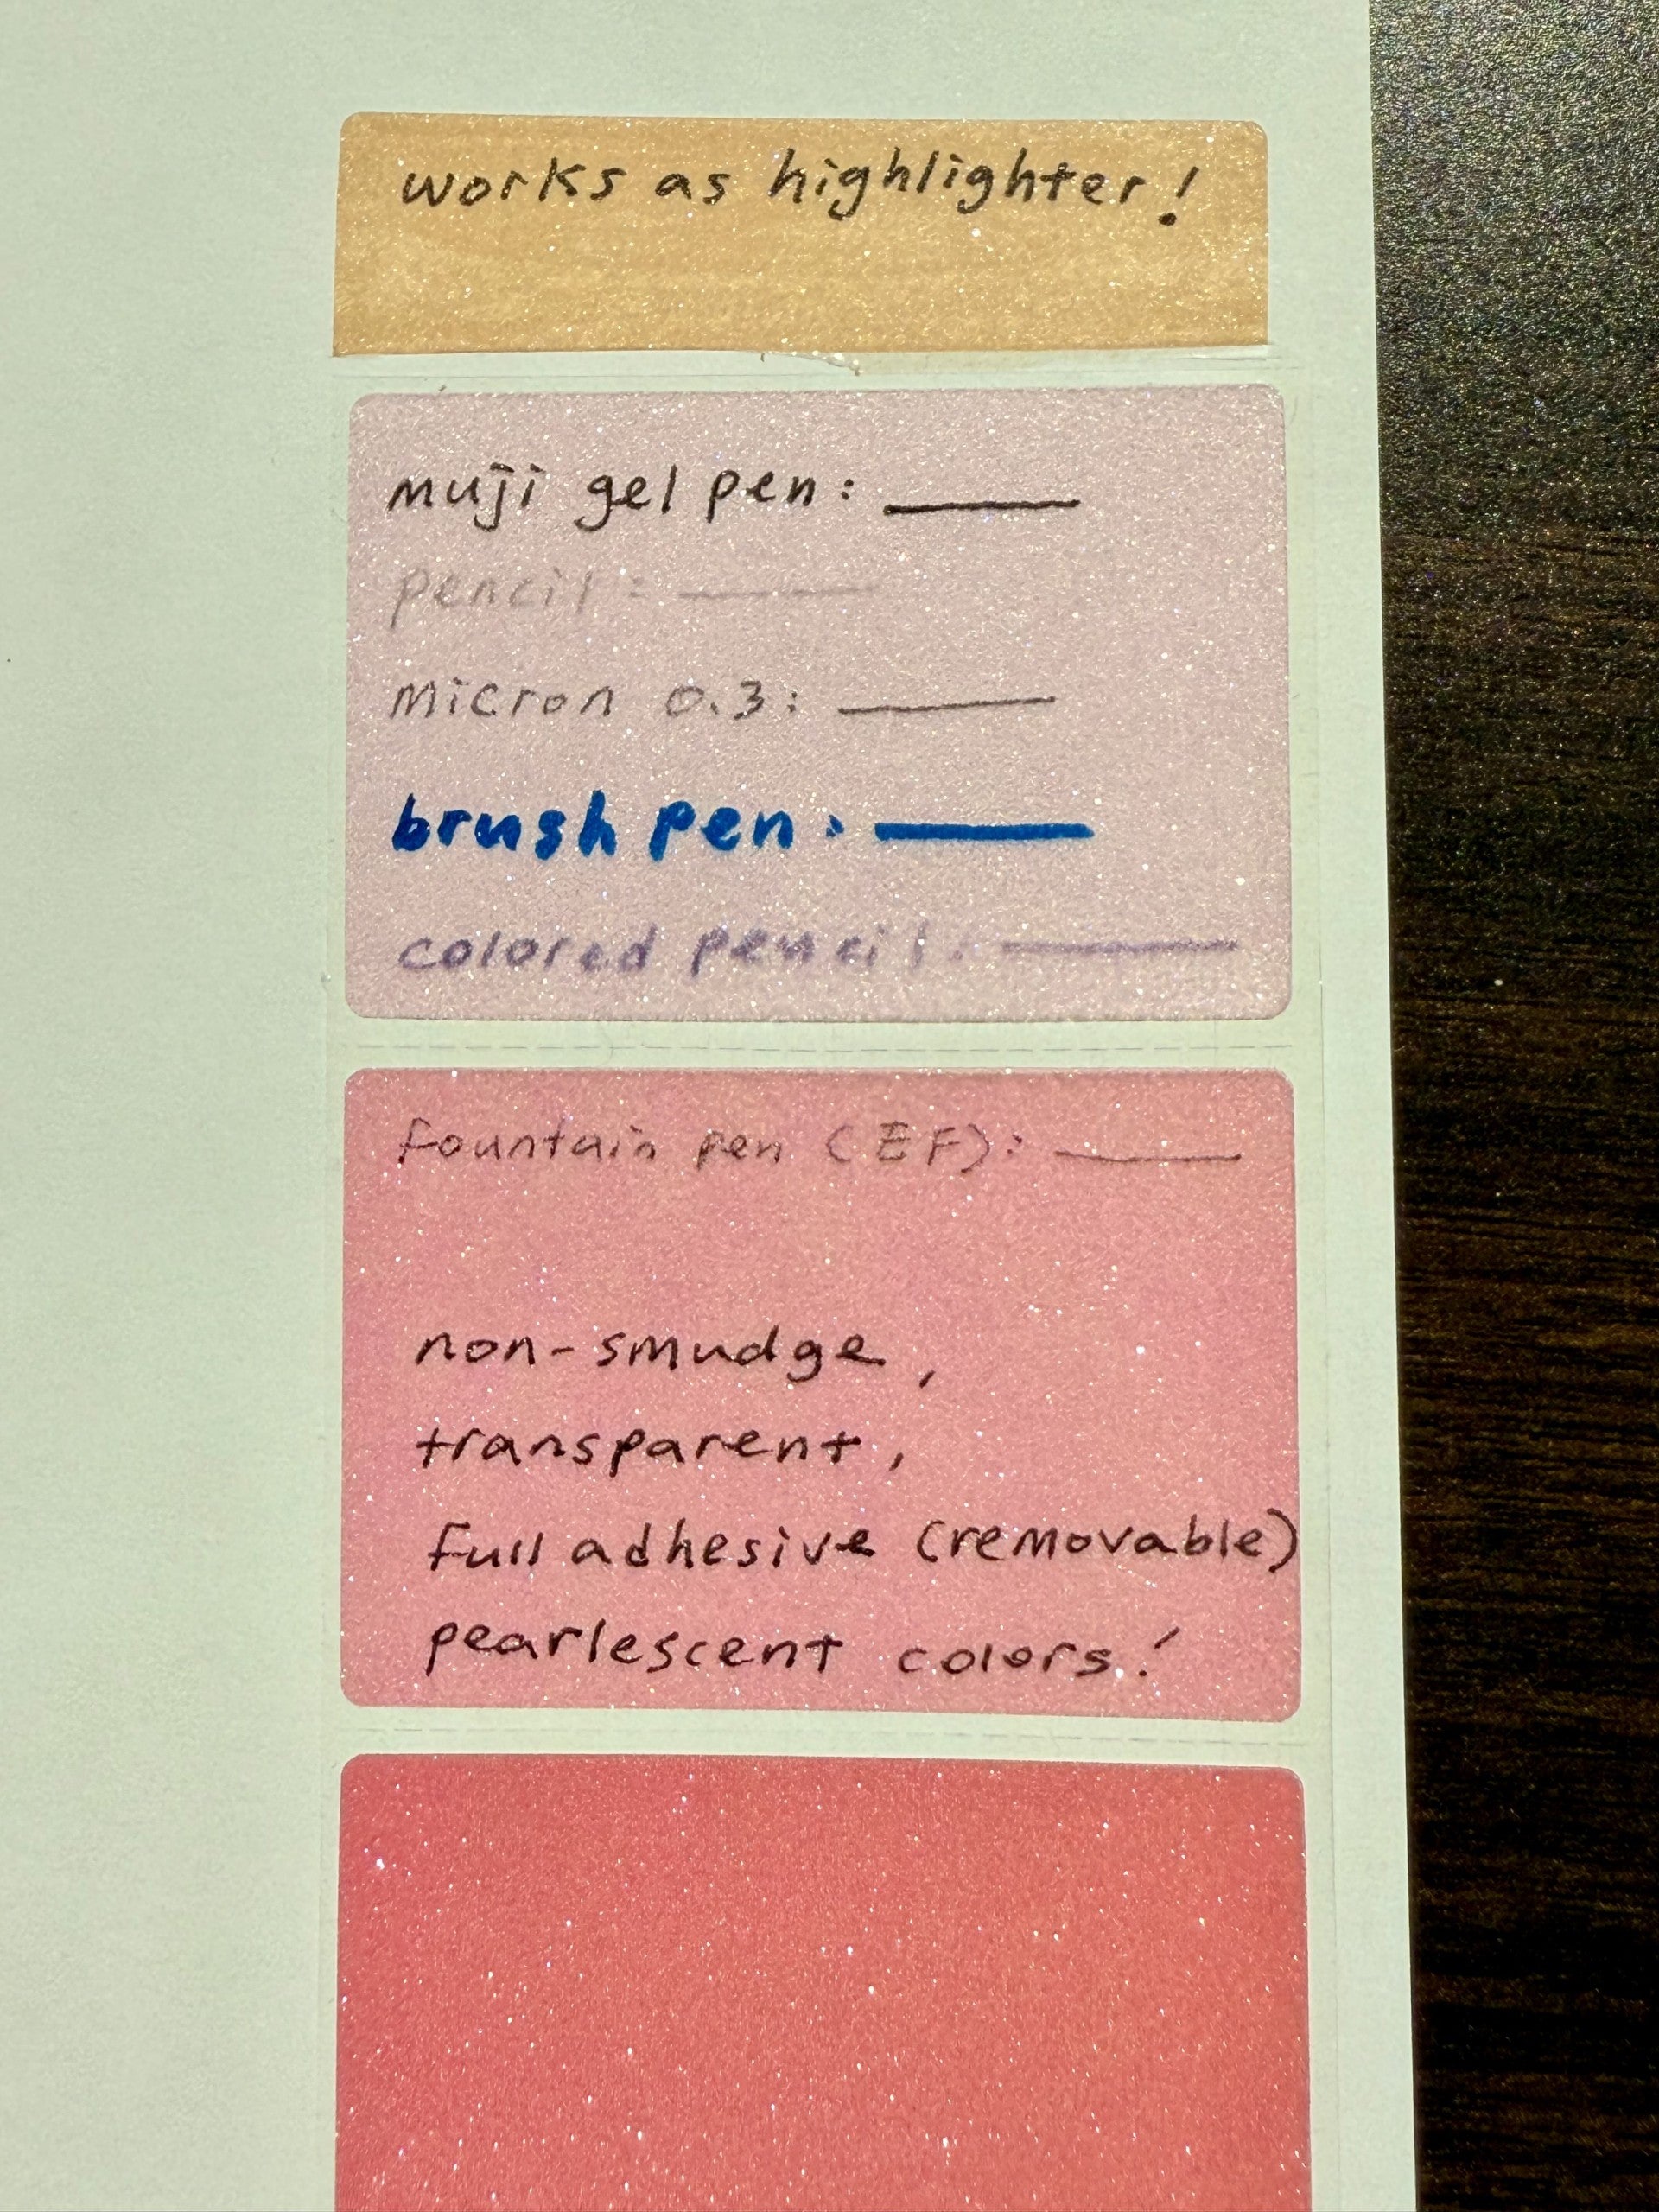 works as highlighter!
muji gel pen:
pencil:
micron 0.3:
brush pen:
colored pencil:
fountain pen (EF):
non-smudge,
transparent,
full adhesive (removable)
pearlescent colors!